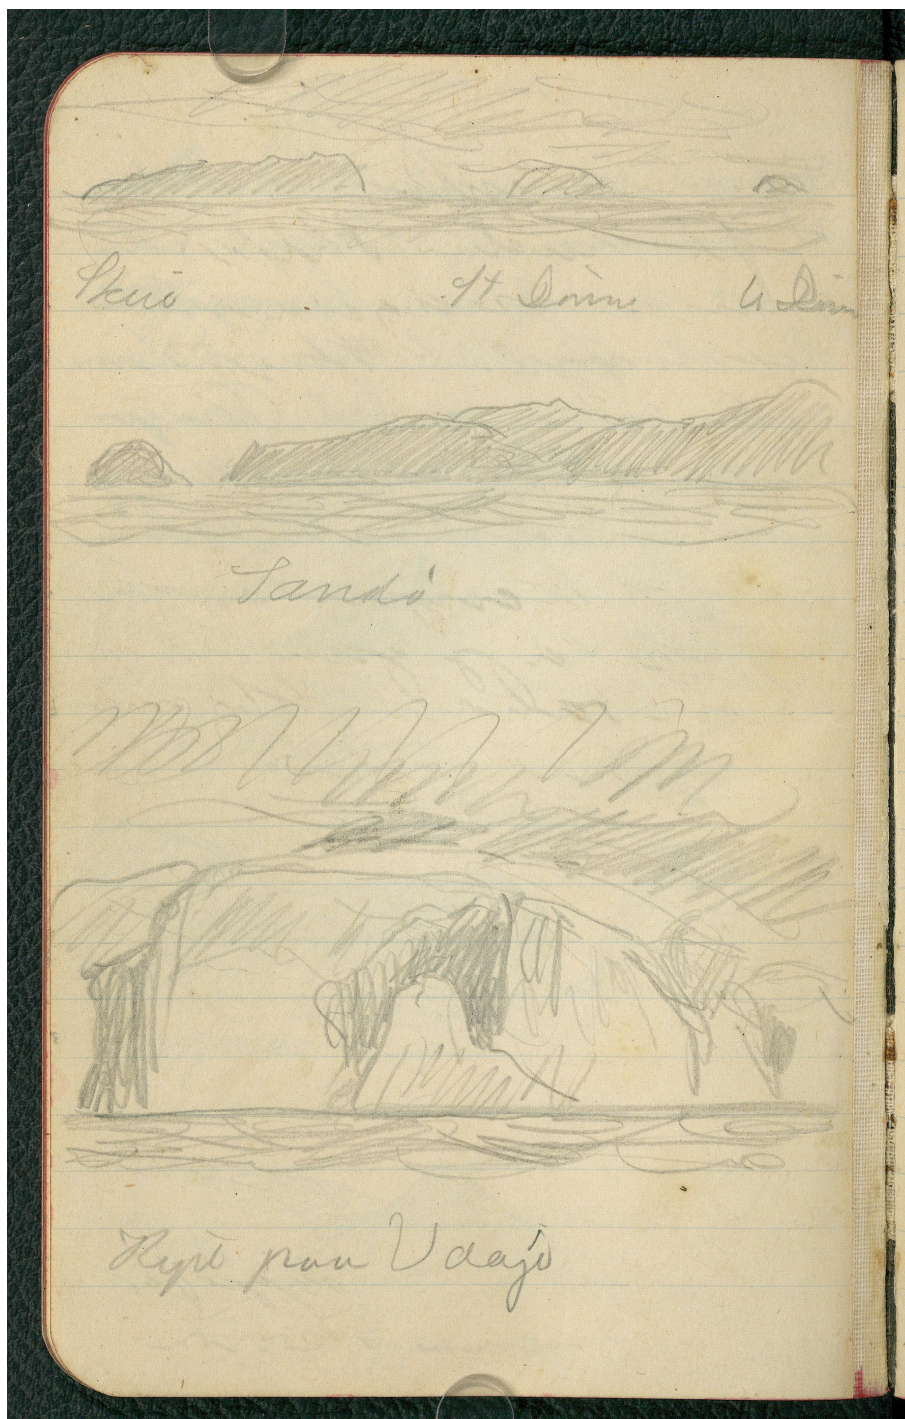 Skuö St Dímun L Dím
Sandö
Kyst paa Vaagö